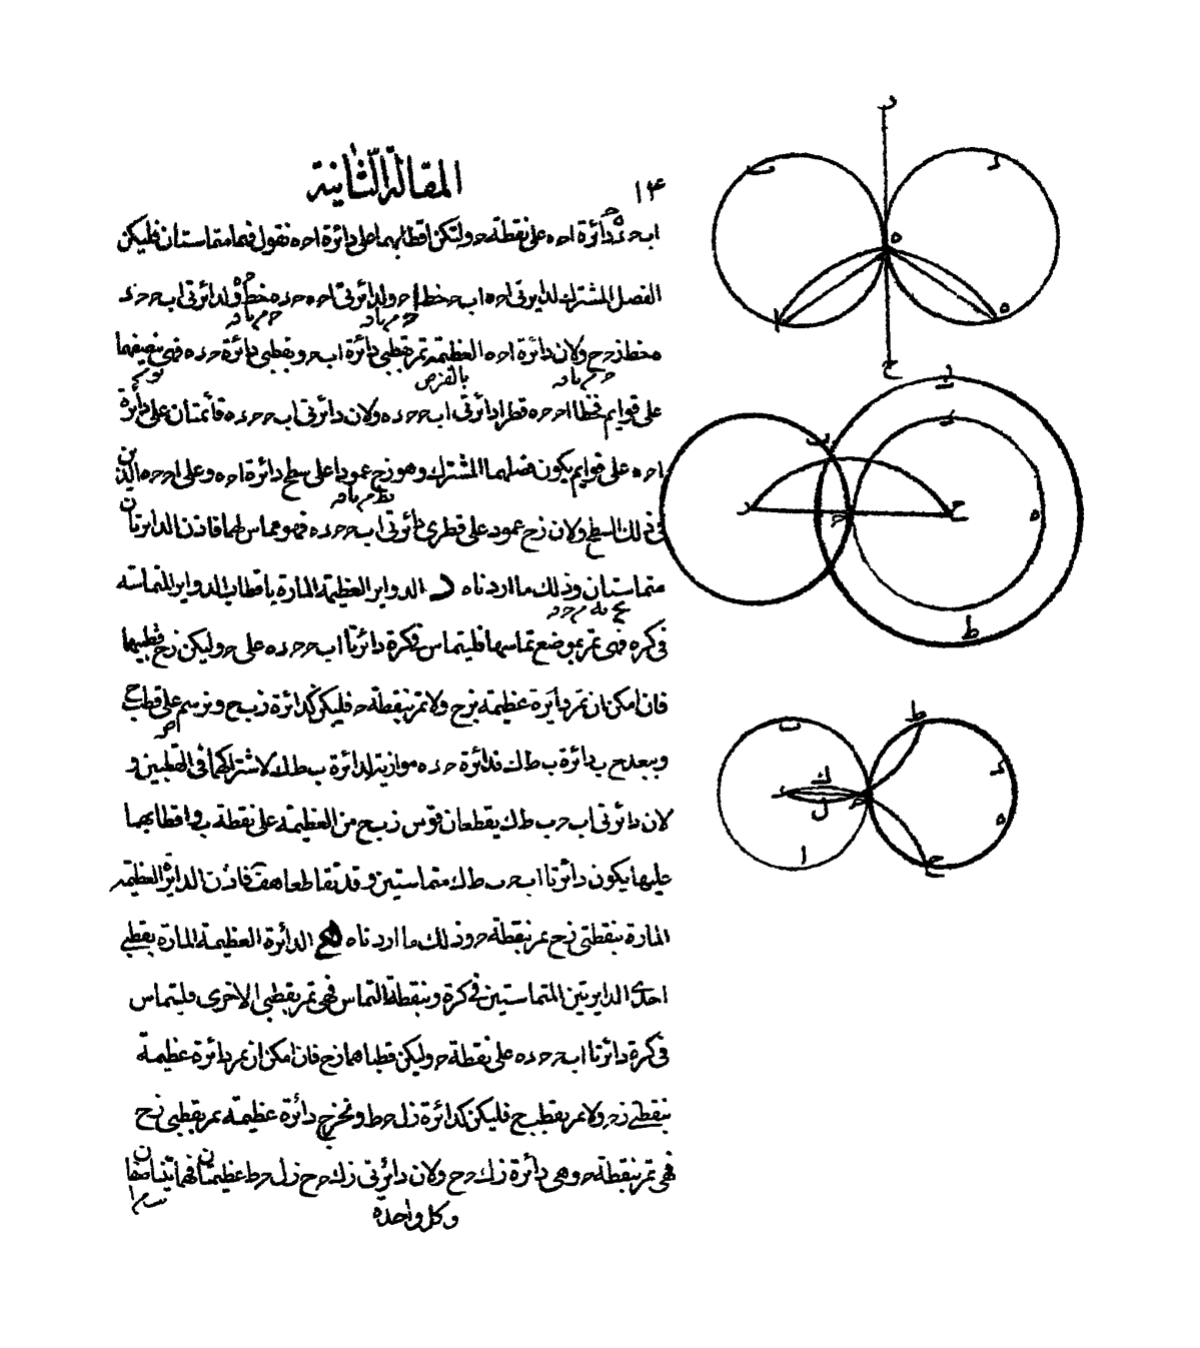 المقالة الثانية
١٤
اب حرء دائرة احه على نقطة ح ولتكن اقطابهما على دائرة احه نقول فهما متماستان فليكن
الفصل المشترك لدائرتى احه اب ح خط اح ولدائرتى احه حءه خط حه ولدائرتى اب ح حءه
خط زح ولان دائرة احه العظيمة تمر بقطبى دائرة اب ح وبقطبى دائرة حءه فهى تنصفهما
بالفرض
على قوايم فخطا اح حه قطرا دائرتى اب ح حءه ولان دائرتى اب ح حءه قائمتان على دائرة
احه على قوايم يكون فصلهما المشترك وهو زح عمودا على سطح دائرة احه وعلى اح حه الذين
فى ذلك السطح ولان زح عمود على قطرى دائرتى اب ح حءه فهو مماس لهما فاذن الدائرتان
متماستان وذلك ما اردناه د الدواير العظيمة المارة باقطاب الدواير المتماسة
فى كرة فهى تمر بموضع تماسها فليتماس فى كرة دائرتا اب ح حءه على ح وليكن زح قطبيهما
فان امكن ان تمر دايرة عظيمة بزح ولا تمر بنقطة ح فليكن كدائرة زبح ونرسم على قطب ح
وببعد ح ب دائرة ب ط ك فدائرة حءه موازية لدائرة ب ط ك لاشتراكهما فى القطبين و
لان دائرتى اب ح ب ط ك يقطعان قوس زبح من العظيمة على نقطة ب واقطابهما
عليها يكون دائرتا اب ح ب ط ك متماستين وقد تقاطعا هف فاذن الدايرة العظيمة
المارة بنقطتى زح تمر بنقطة ح وذلك ما اردناه ه الدائرة العظيمة المارة بقطبى
احدى الدايرتين المتماستين فى كرة وبنقطة التماس فهى تمر بقطبى الاخرى فليتماس
فى كرة دائرتا اب ح حءه على نقطة ح وليكن قطباهما زح فان امكن ان تمر دائرة عظيمة
بنقطتى زح ولا تمر بقطب ح فليكن كدائرة زل ح ط ونخرج دائرة عظيمة تمر بقطبى زح
فهى تمر بنقطة ح وهى دائرة زك ح ح ولان دائرتى زك ح ح زل ح ط عظيمتان فهما تتناصفان
وكل واحدة